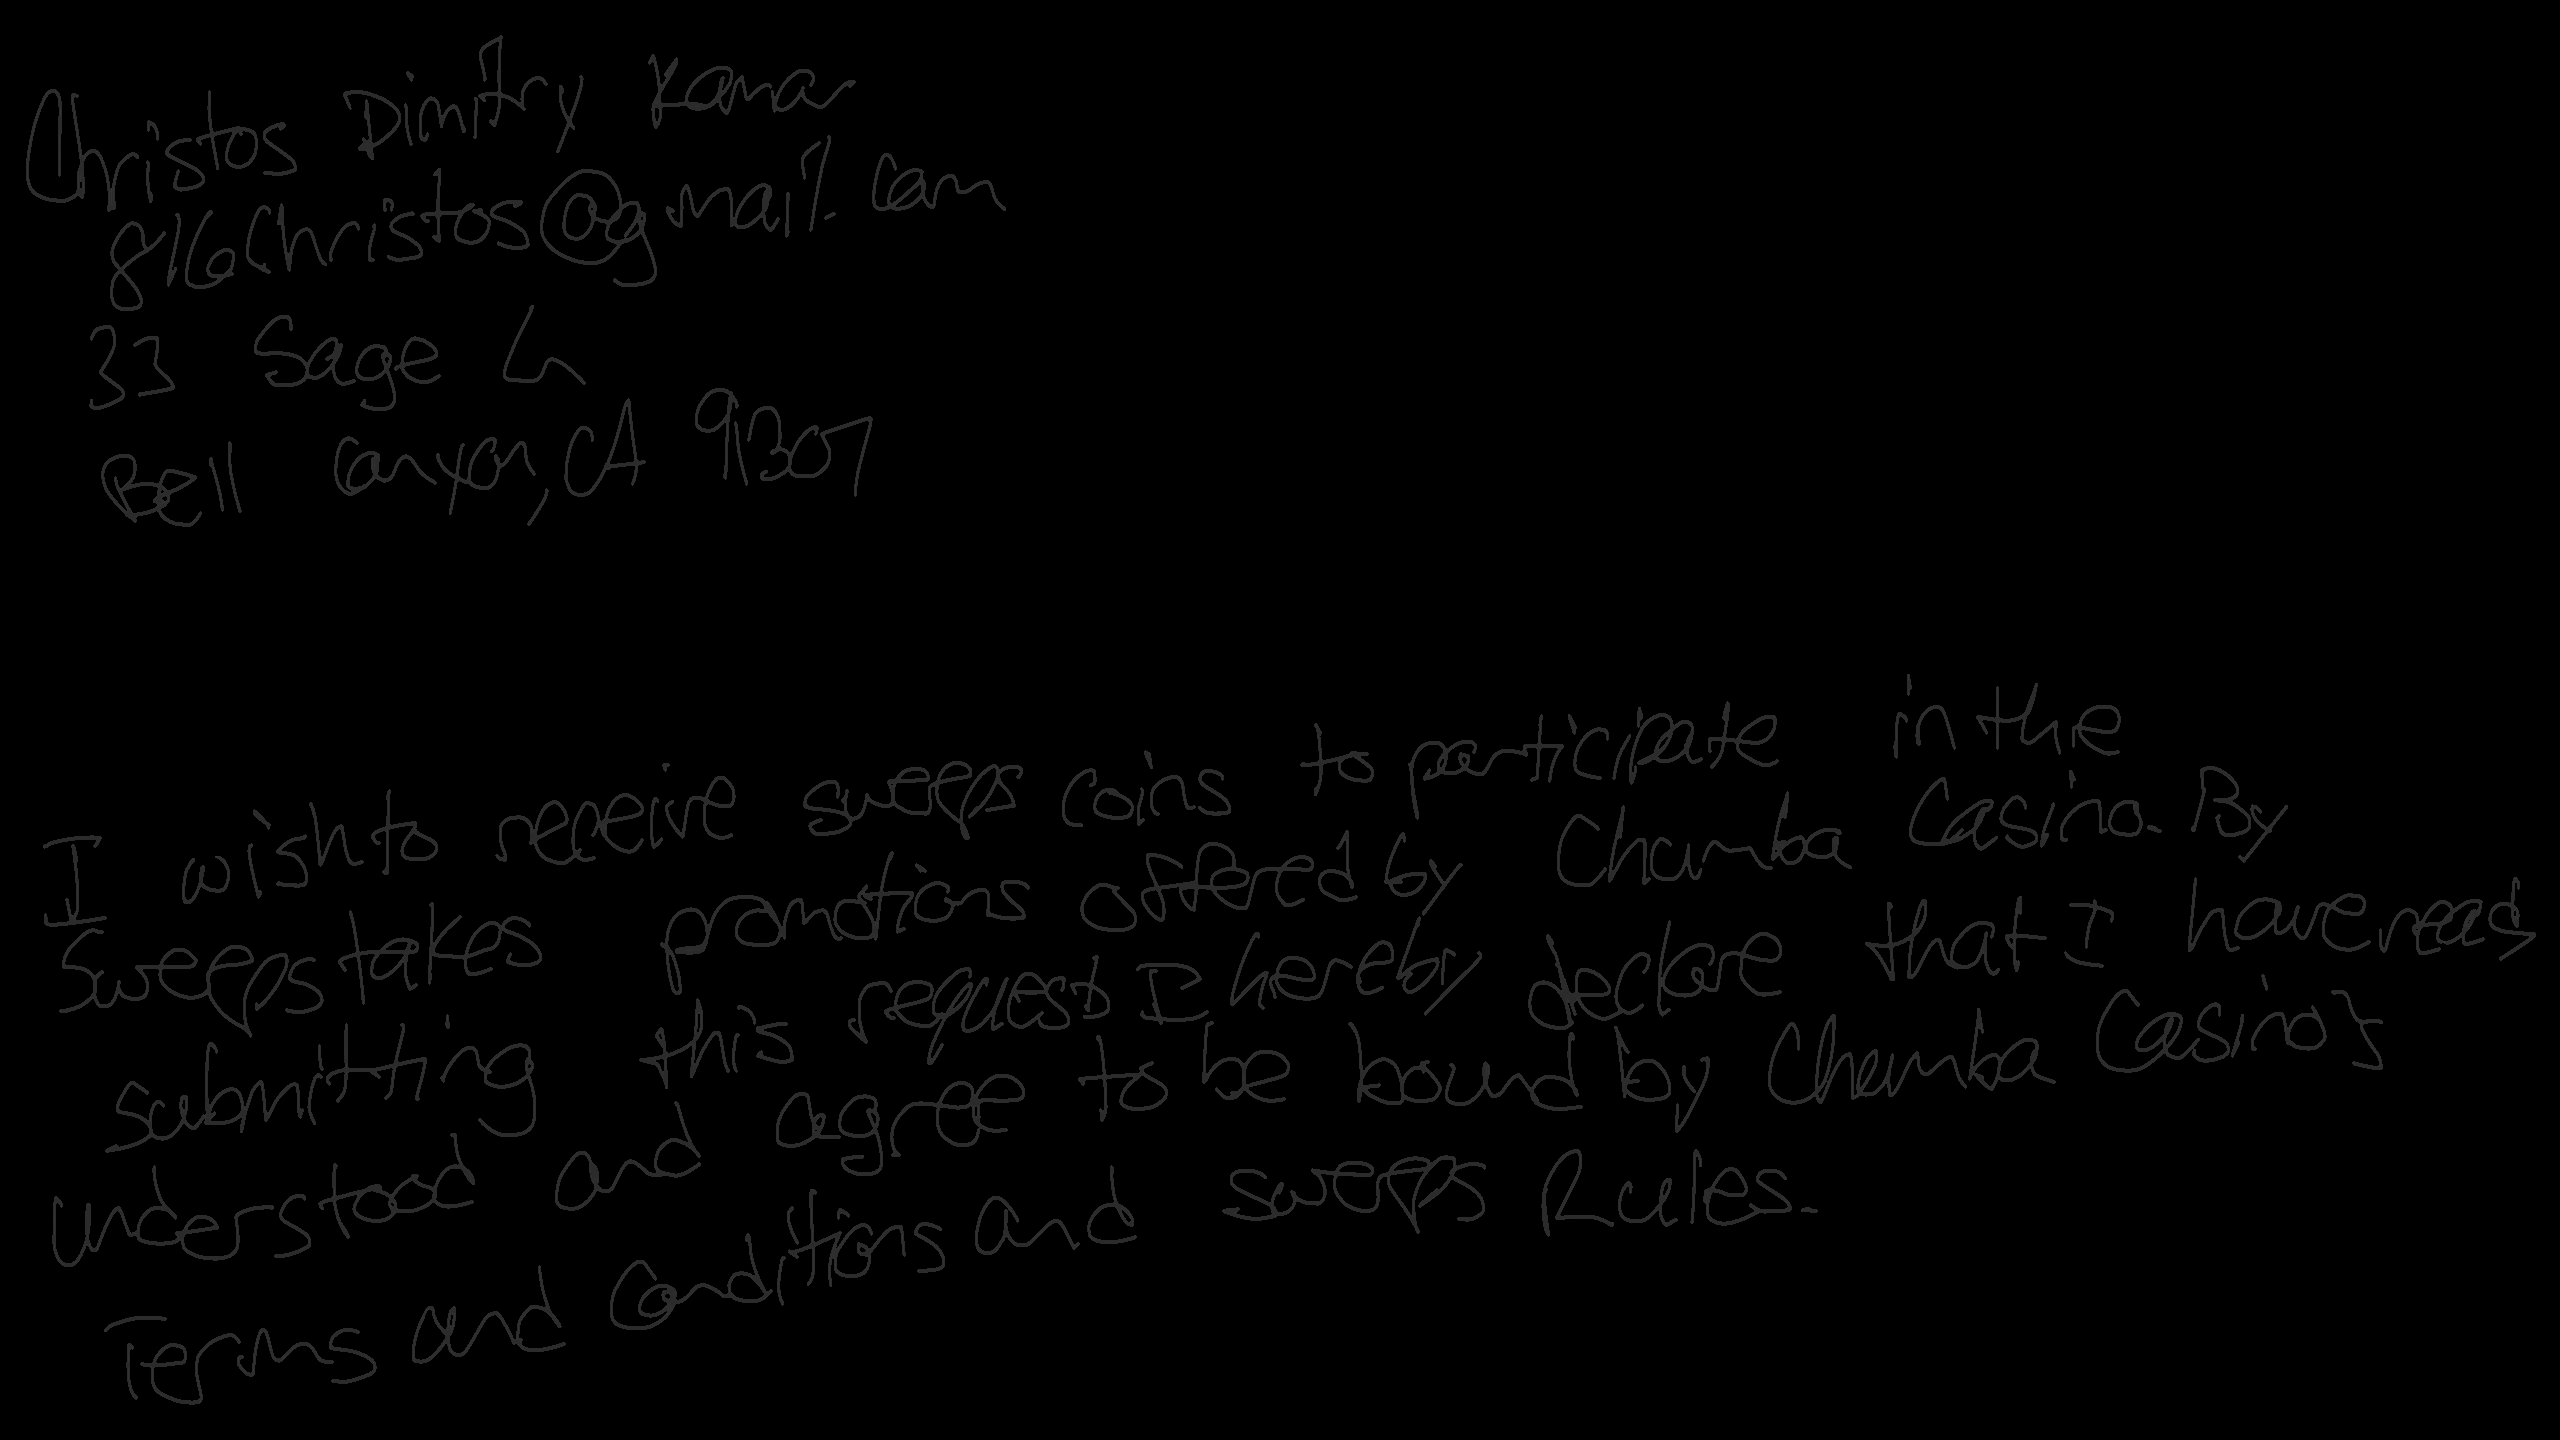 Christos Dimitry Kamar
816Christos@gmail.com
33 Sage Ln
Bell Canyon, CA 91307
I wish to receive sweeps coins to participate in the
Sweepstakes promotions offered by Chumba Casino. By
submitting this request I hereby declare that I have read,
understood and agree to be bound by Chumba Casino's
Terms and Conditions and Sweeps Rules.